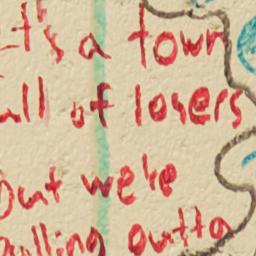 It's a town
all of losers
but we're
pulling outta